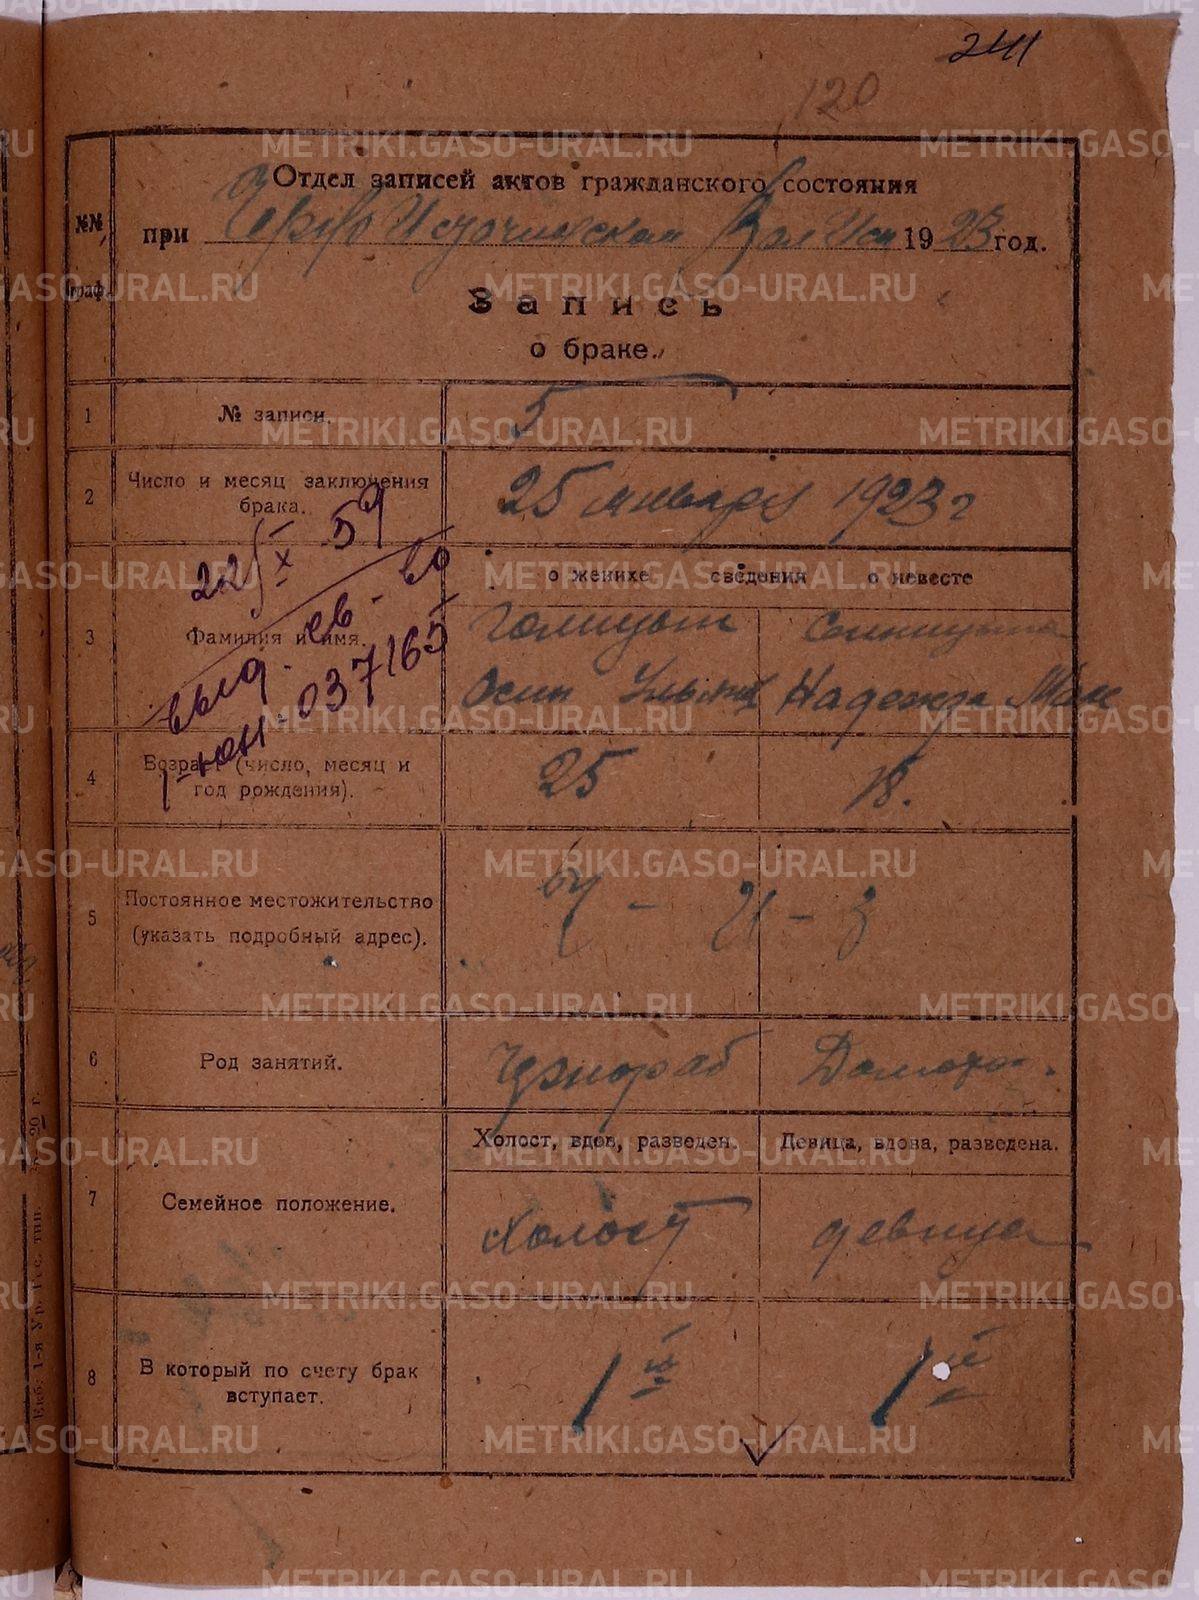 241
120
Отдел записей актов гражданского состояния
№№ граф.
при Исочинском Вол Исп 1923 год.
Запись
о браке.
1 № записи. 5
2 Число и месяц заключения брака. 25 января 1923 г
22/X 59
выд. св-во
I-ЮН-037165
о женихе сведения о невесте
3 Фамилия и имя. Голицын
Осип Надежда Мак
4 Возраст (число, месяц и год рождения). 25 18.
5 Постоянное местожительство (указать подробный адрес). - И - З
6 Род занятий. Чернораб Домохоз.
Холост, вдов, разведен. Девица, вдова, разведена.
7 Семейное положение. Холост девица
8 В который по счету брак вступает. 1й 1й
Екб: 1-я Ур. Гос. тип. 20 г.
METRIKI.GASO-URAL.RU